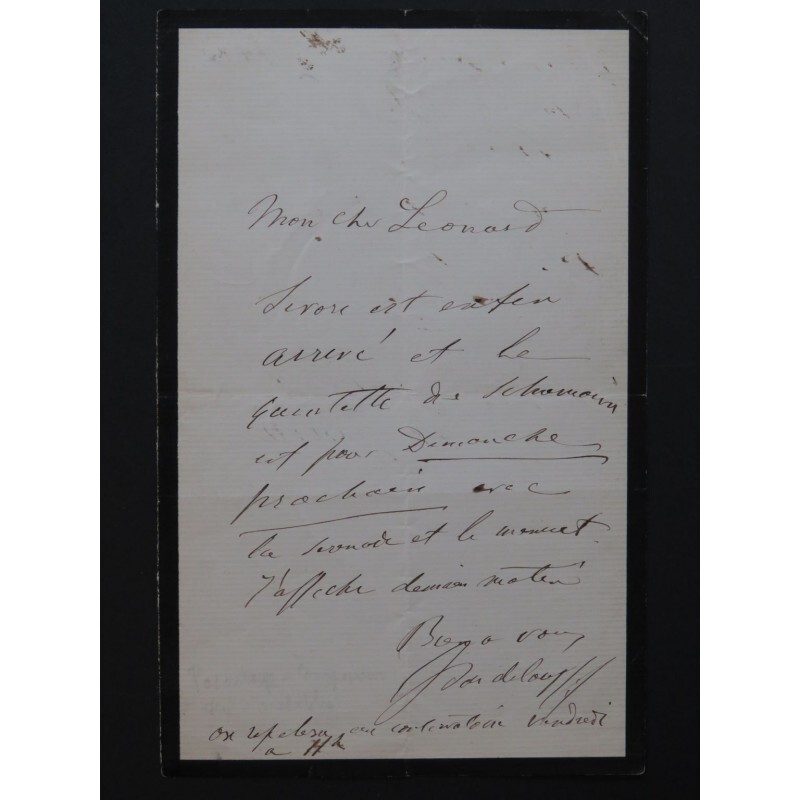 Mon cher Leonard
Sivori est enfin
arrivé et le
quintette de Schumann
est pour Dimanche
prochain avec
la serenade et le menuet.
J'affiche demain matin
Bien a vous
Pasdeloup
on repetera au conservatoire vendredi
a